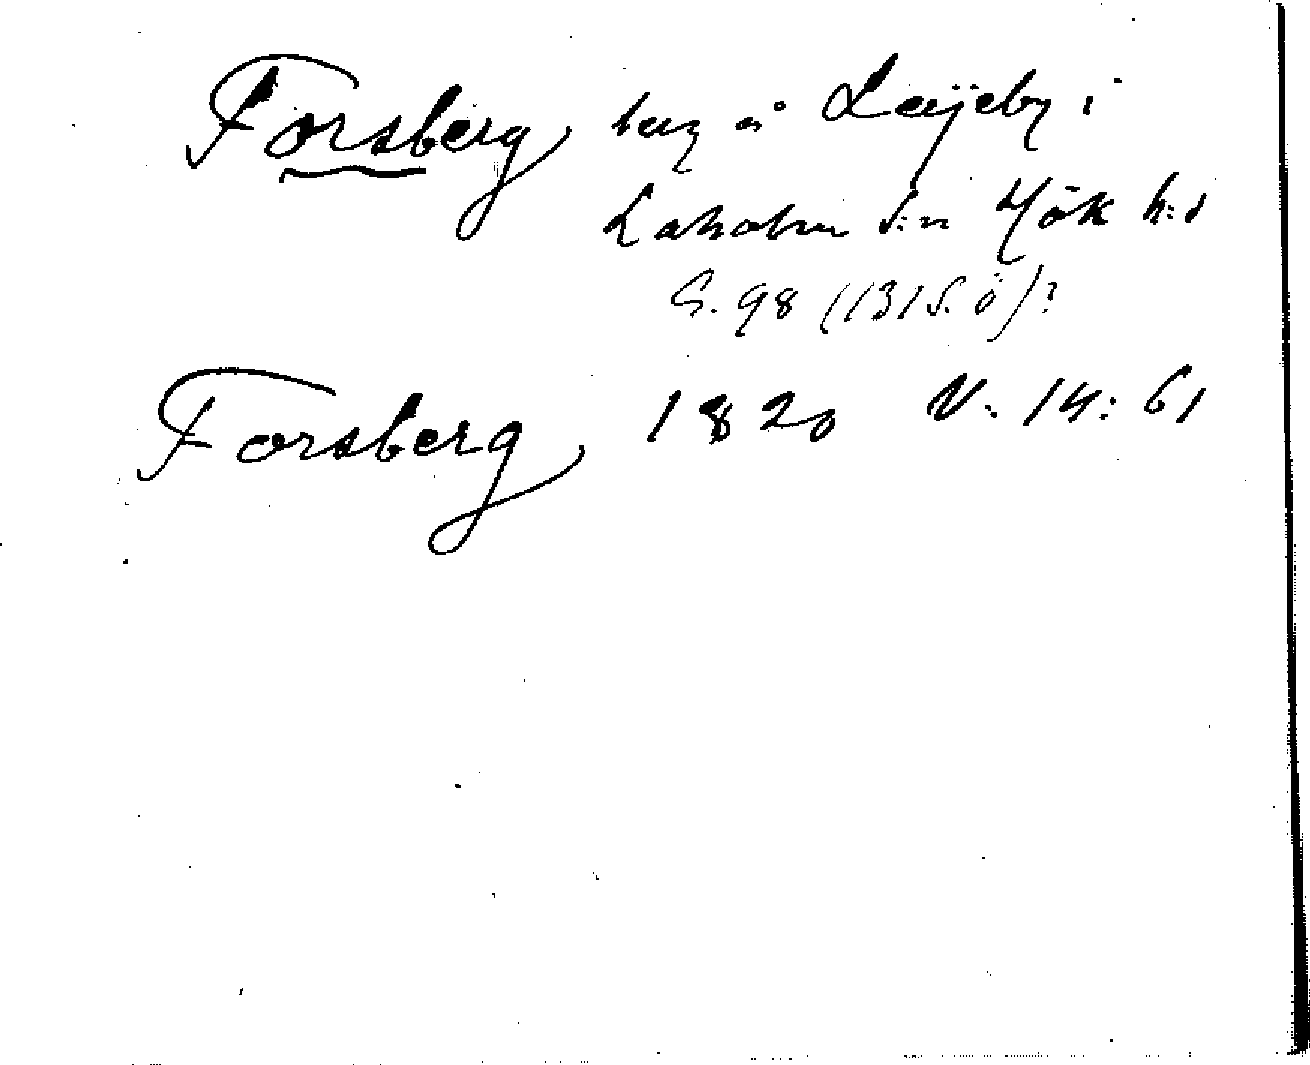 Forsberg, berg å Leijeby i
Laholm s:n Hök h:d
S. 98 (131 S. Ö)?
Forsberg, 1820 V. 14: 61